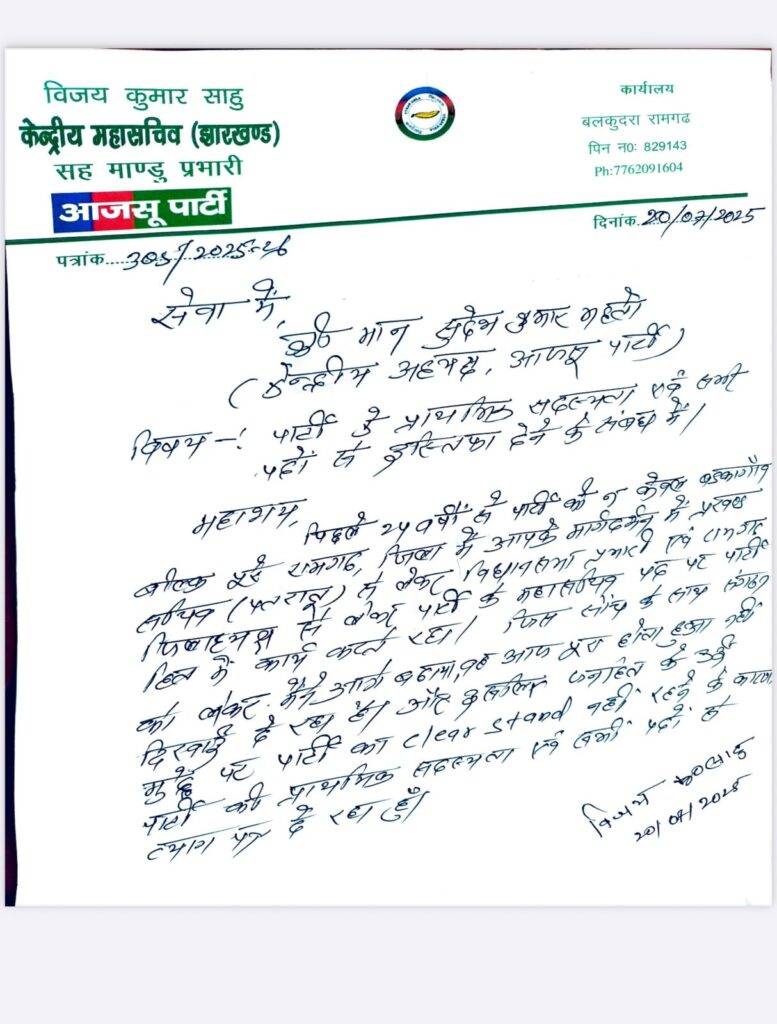 विजय कुमार साहु
केन्द्रीय महासचिव (झारखण्ड)
सह माण्डु प्रभारी
आजसू पार्टी
कार्यालय
बलकुदरा रामगढ
पिन न0: 829143
Ph:7762091604
दिनांक 20/07/2025
पत्रांक.....305/2025-26
सेवा में,
श्री मान सुदेश कुमार महतो
(केन्द्रीय अध्यक्ष, आजसू पार्टी)
विषय -: पार्टी के प्राथमिक सदस्यता एवं सभी
पदों से इस्तिफा देने के संबंध में।
महाशय,
पिछले 24 वर्षों से पार्टी को न केवल बड़कागाँव
बल्कि पूरे रामगढ़ जिला में आपके मार्गदर्शन में प्रखण्ड
सचिव (पतरातू) से लेकर विधानसभा प्रभारी एवं रामगढ़
जिलाध्यक्ष से लेकर पार्टी के महासचिव पद पर पार्टी
हित में कार्य करते रहा। जिस सोंच के साथ संगठन
को लेकर मैंने आगे बढ़ाया, वह आज पूरा होता हुआ नहीं
दिखाई दे रहा है। और जनहित के
मुद्दे पर पार्टी का clear stand नहीं रहने के कारण
पार्टी की प्राथमिक सदस्यता एवं सभी पदों से
त्याग पत्र दे रहा हूँ।
विजय कु० साहु
20/07/2025